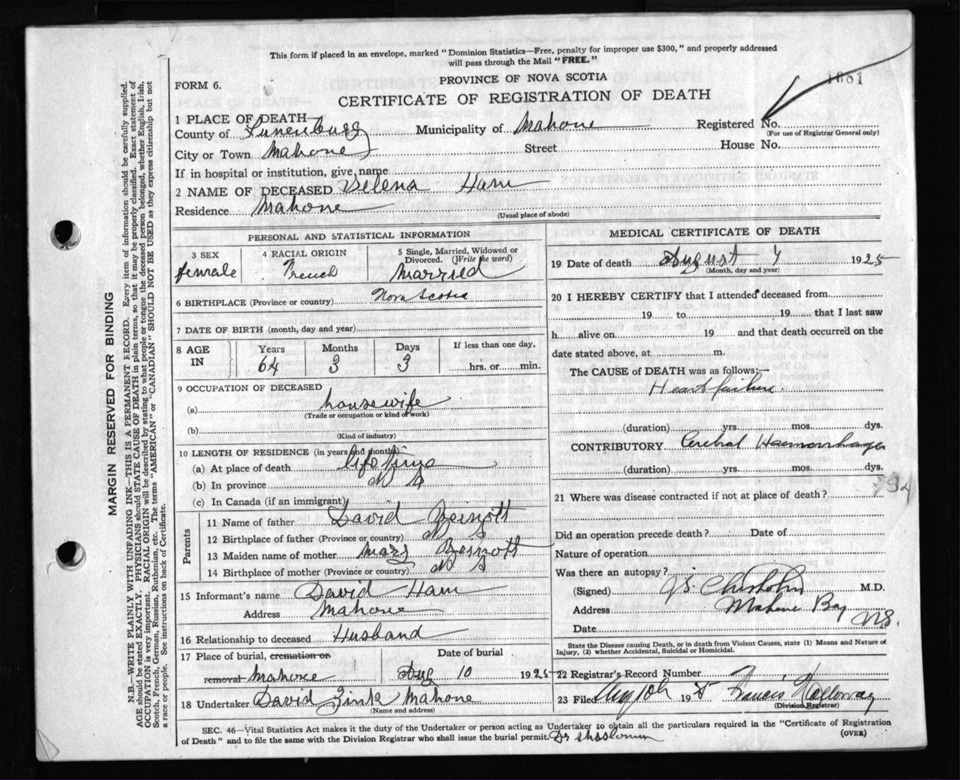 This form if placed in an envelope, marked "Dominion Statistics—Free, penalty for improper use $300," and properly addressed
will pass through the Mail "FREE."
FORM 6.
PROVINCE OF NOVA SCOTIA
1681
CERTIFICATE OF REGISTRATION OF DEATH
1 PLACE OF DEATH—
County of Lunenburg Municipality of Mahone Registered No.
(For use of Registrar General only)
City or Town Mahone Street House No.
If in hospital or institution, give name
2 NAME OF DECEASED Selena Ham
Residence Mahone
(Usual place of abode)
PERSONAL AND STATISTICAL INFORMATION
3 SEX 4 RACIAL ORIGIN 5 Single, Married, Widowed or Divorced. (Write the word)
female French Married
6 BIRTHPLACE (Province or country) Nova Scotia
7 DATE OF BIRTH (month, day and year)
8 AGE IN Years Months Days If less than one day,
64 3 3 hrs. or min.
9 OCCUPATION OF DECEASED
(a) housewife
(Trade or occupation or kind of work)
(b)
(Kind of industry)
10 LENGTH OF RESIDENCE (in years and months)
(a) At place of death life time
(b) In province N S
(c) In Canada (if an immigrant)
Parents
11 Name of father David
12 Birthplace of father (Province or country) N S
13 Maiden name of mother Mary
14 Birthplace of mother (Province or country) N S
15 Informant's name David Ham
Address Mahone
16 Relationship to deceased Husband
17 Place of burial, cremation or removal Mahone Date of burial Aug 10 1925
18 Undertaker David Zink Mahone
(Name and address)
MEDICAL CERTIFICATE OF DEATH
19 Date of death August 7 1925
(Month, day and year)
20 I HEREBY CERTIFY that I attended deceased from
19 to 19 that I last saw
h alive on 19 and that death occurred on the
date stated above, at m.
The CAUSE of DEATH was as follows:—
Heart failure
(duration) yrs. mos. dys.
CONTRIBUTORY Cerebral Haemorrhage
(duration) yrs. mos. dys.
21 Where was disease contracted if not at place of death?
Did an operation precede death? Date of
Nature of operation
Was there an autopsy?
(Signed) Chisholm M.D.
Address Mahone Bay
Date N.S.
State the Disease causing Death, or in death from Violent Causes, state (1) Means and Nature of
Injury, (2) whether Accidental, Suicidal or Homicidal.
22 Registrar's Record Number
23 Filed Aug 10th 1925 Francis Holloway
(Division Registrar)
SEC. 46—Vital Statistics Act makes it the duty of the Undertaker or person acting as Undertaker to obtain all the particulars required in the "Certificate of Registration
of Death" and to file the same with the Division Registrar who shall issue the burial permit. Dr
(OVER)
MARGIN RESERVED FOR BINDING
N.B.—WRITE PLAINLY WITH UNFADING INK—THIS IS A PERMANENT RECORD. Every item of information should be carefully supplied.
AGE should be stated EXACTLY. PHYSICIANS should STATE CAUSE OF DEATH in plain terms, so that it may be properly classified. Exact statement of
OCCUPATION is very important. RACIAL ORIGIN will be described by stating to what people or tongue the deceased person belonged, whether English, Irish,
Scotch, French, German, Russian, Ruthenian, etc. The terms "AMERICAN" or "CANADIAN" SHOULD NOT BE USED as they express citizenship but not
a race or people. See instructions on back of Certificate.